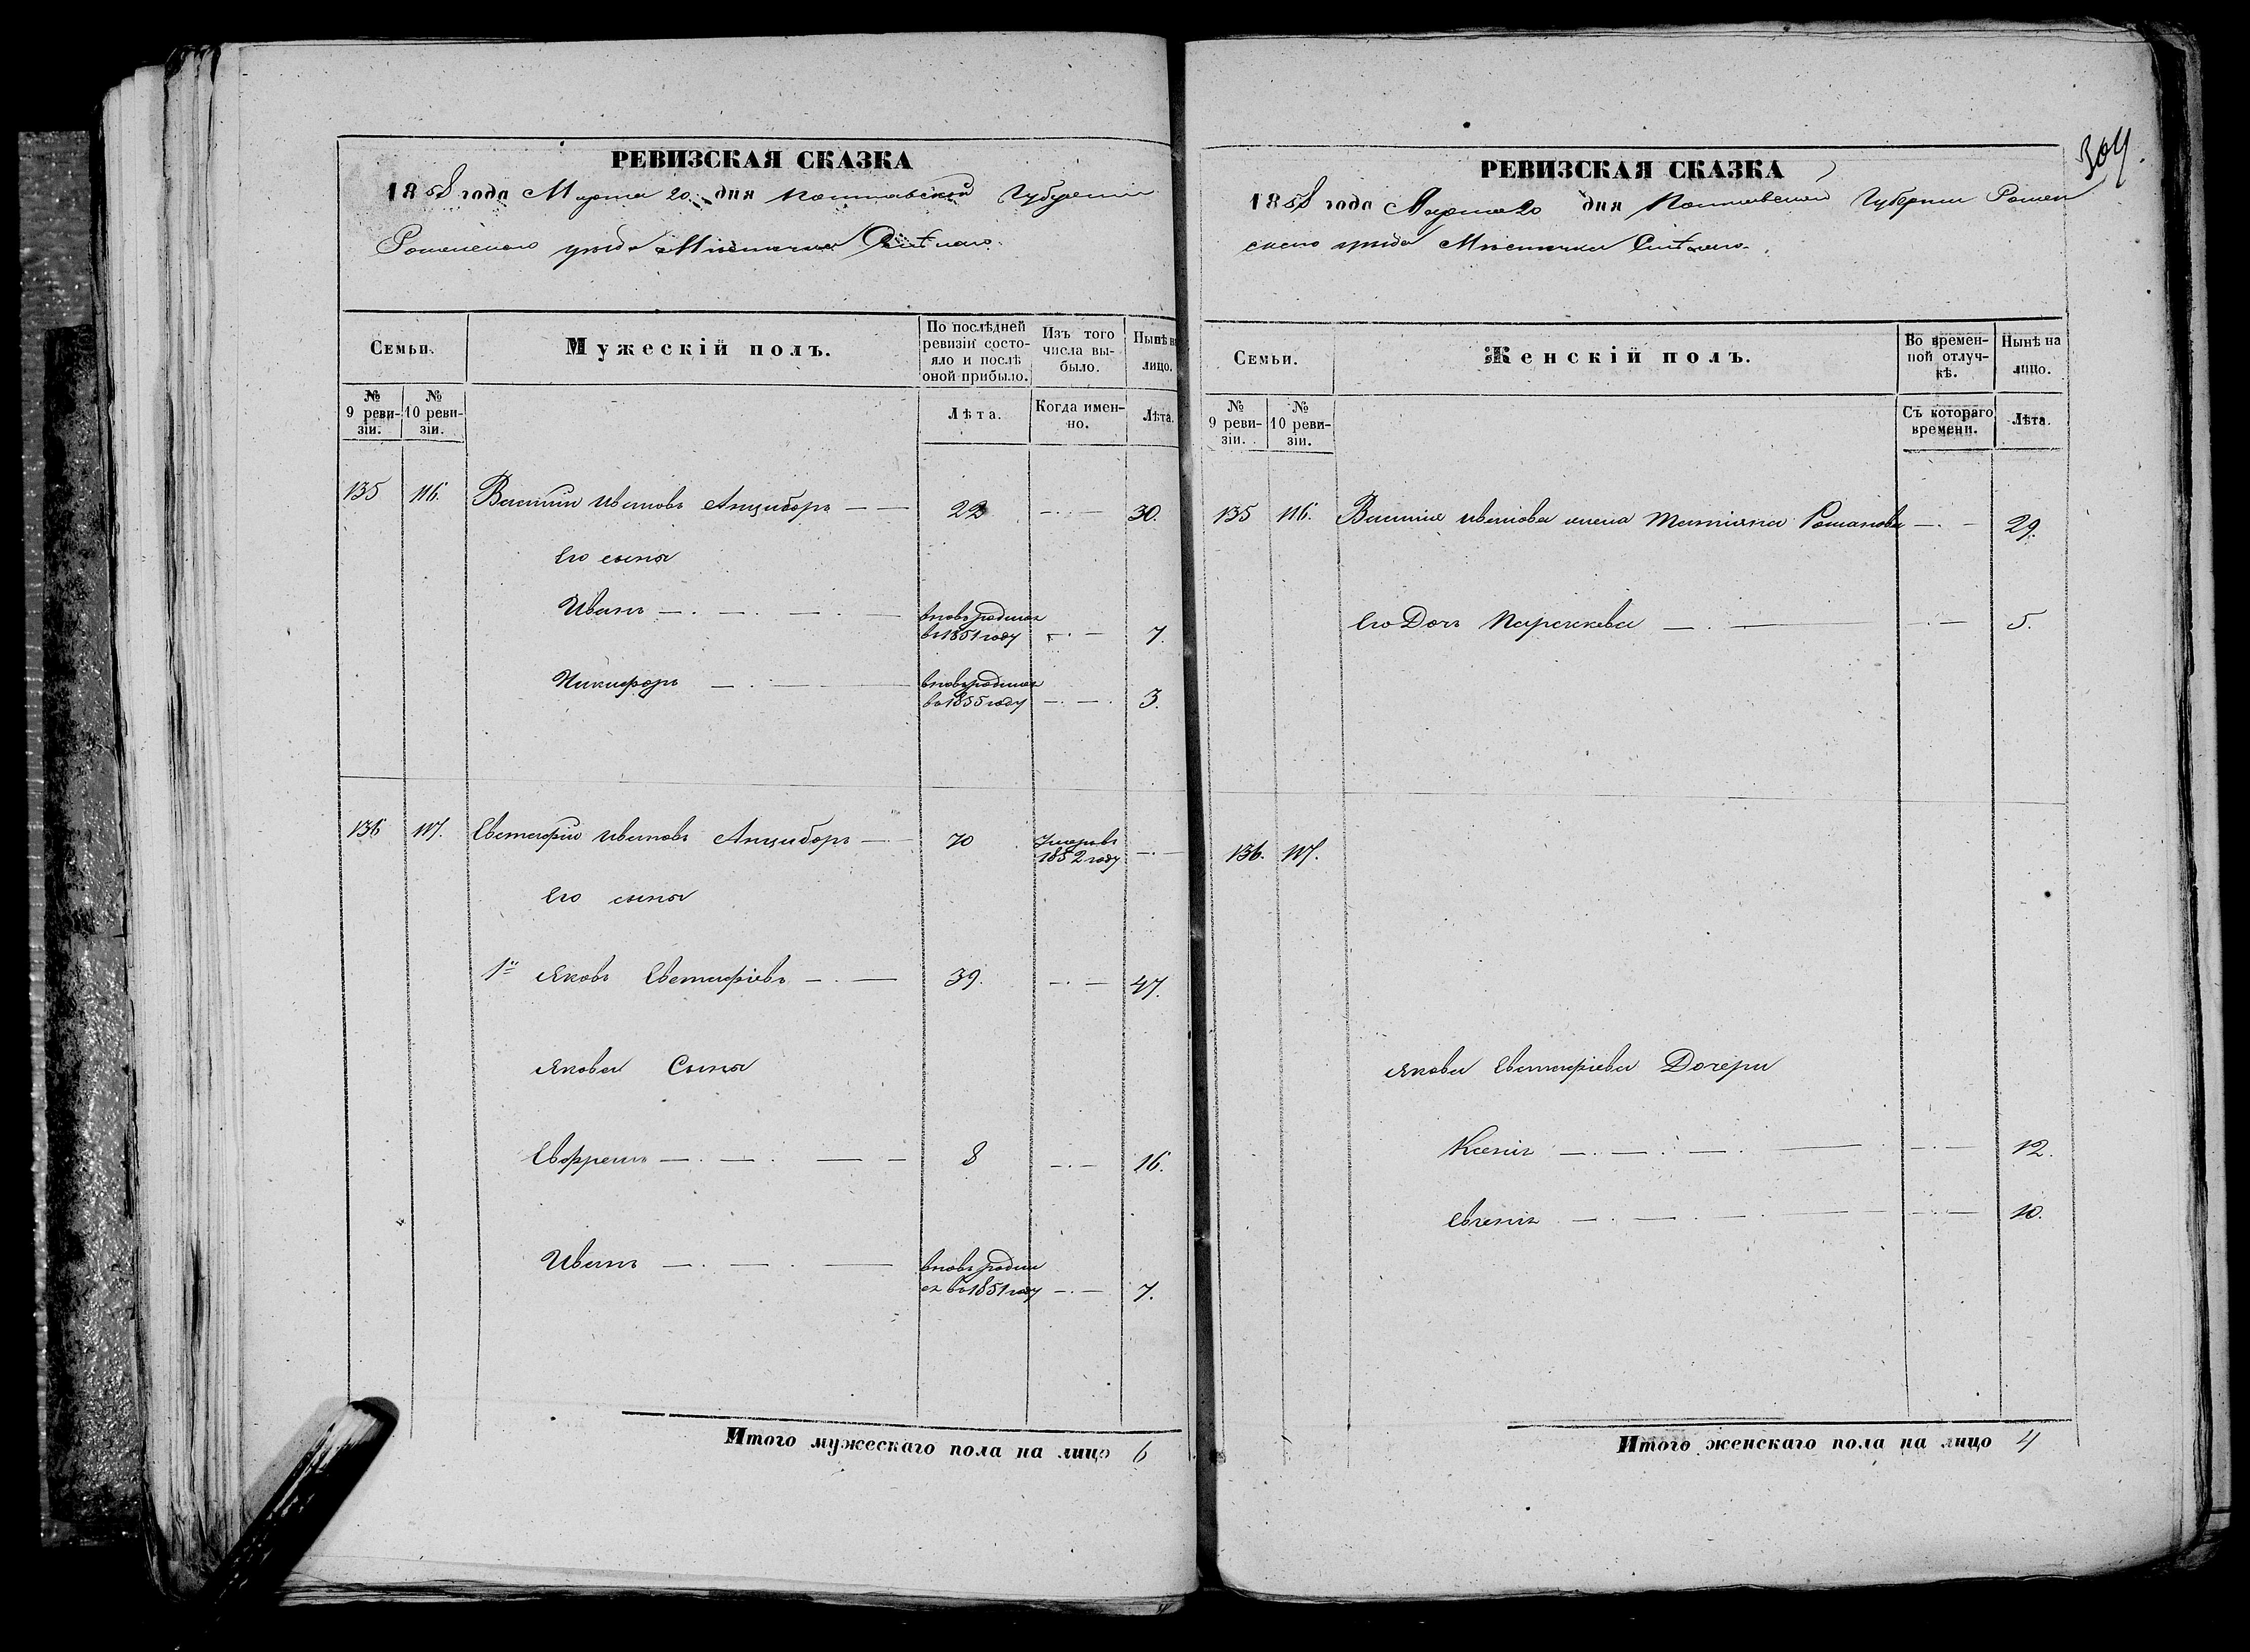 РЕВИЗСКАЯ СКАЗКА
1858 года Марта 20 дня Полтавской Губернии
Роменского уѣзда Мѣстечка Смѣлого.
Семьи.
Мужескій полъ.
По послѣдней ревизіи состо-
яло и послѣ
оной прибыло.
Изъ того
числа вы-
было.
Нынѣ на
лицо.
№
9 реви-
зіи.
№
10 реви-
зіи.
Лѣта.
Когда имен-
но.
Лѣта.
135 116. Василий Ивановъ Анциборъ 22 30.
Его сыны
Иванъ вновь родился
в 1851 году 7.
Никифоръ вновь родился
в 1855 году 3.
136 117. Евстафий Ивановъ Анциборъ 70 Умеръ въ
1852 году
Его сыны
1й Яковъ Евстафіевъ 39. 47.
Якова Сыны
Евфремъ 8 16.
Иванъ вновь родил
ся в 1851 году 7.
Итого мужескаго пола на лицо 6
304.
РЕВИЗСКАЯ СКАЗКА
1858 года Марта 20 дня Полтавской Губернии Ромен
ского уѣзда Мѣстечка Смѣлого.
Семьи.
Женскій полъ.
Во времен-
ной отлуч-
кѣ.
Нынѣ на
лицо.
№
9 реви-
зіи.
№
10 реви-
зіи.
Съ котораго
времени.
Лѣта.
135 116. Василия Иванова жена Татіяна Романова 29.
Его Дочь Параскева 5.
136. 117.
Якова Евстафіева Дочери
Ксенія 12.
Евгенія 10.
Итого женскаго пола на лицо 4